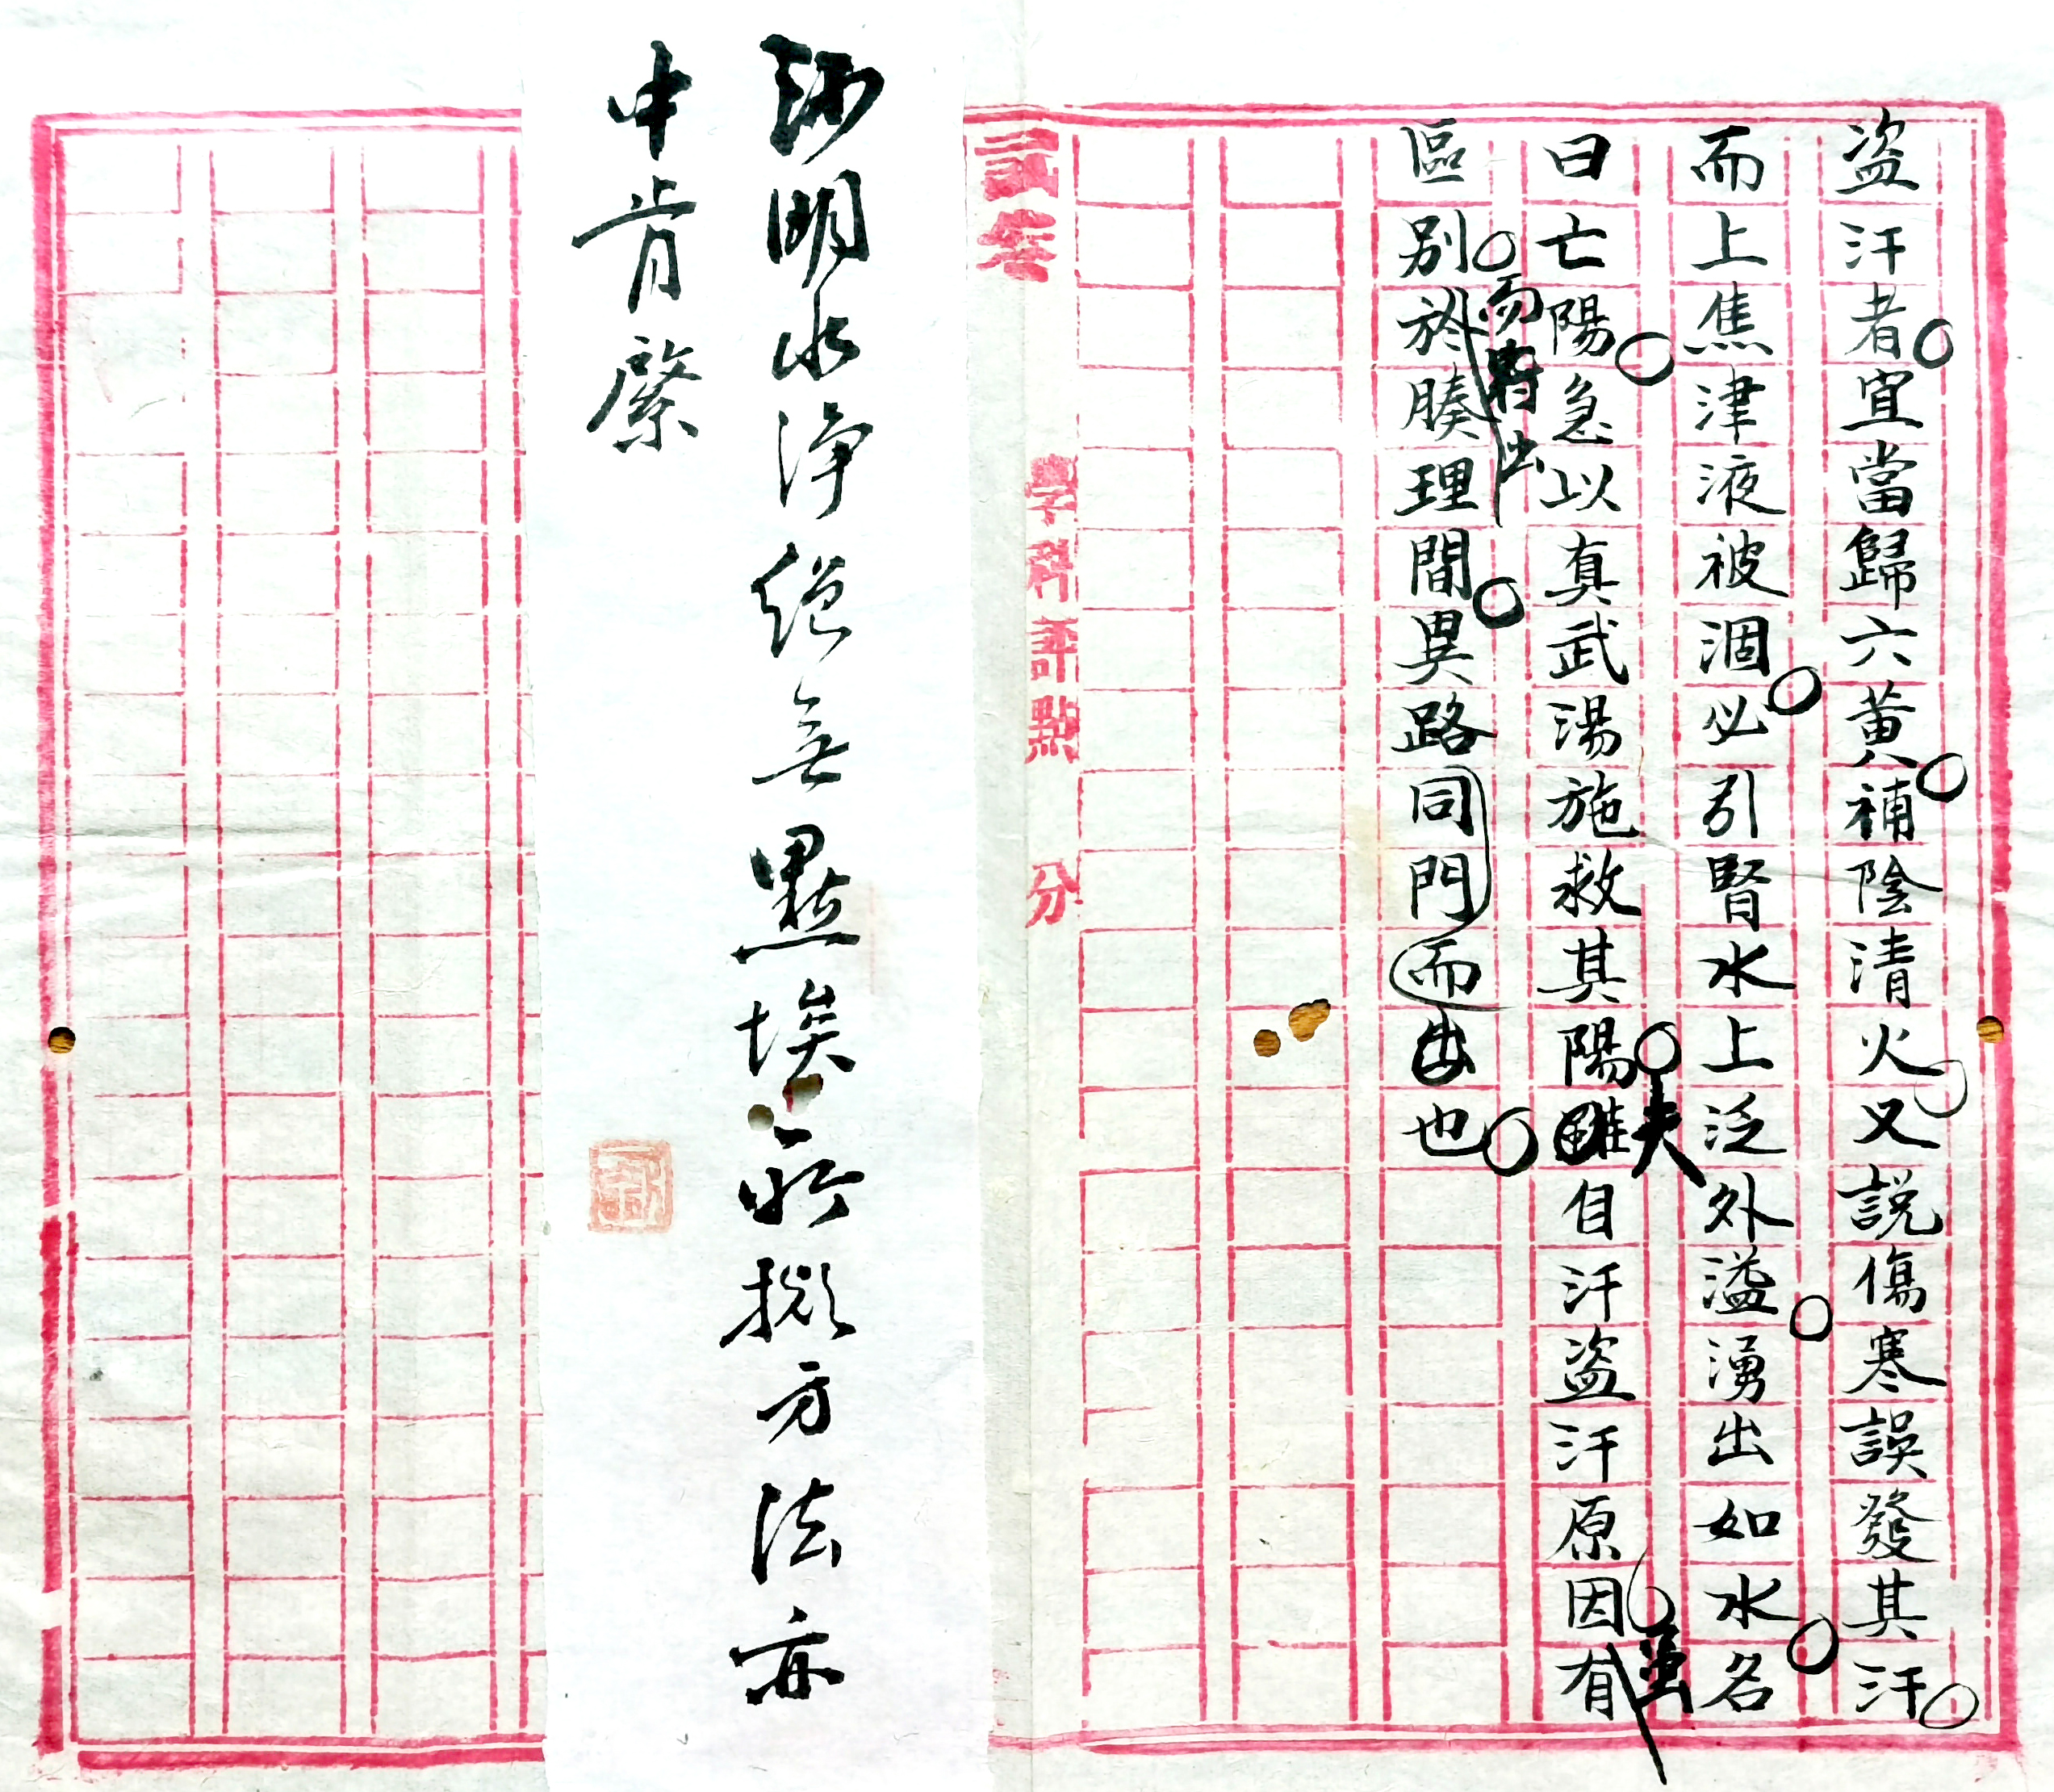 盗汗者宜當歸六黄補陰清火又説傷寒誤發其汗
而上焦津液被涸必引腎水上泛外溢湧出如水名
曰亡陽急以真武湯施救其陽雖自汗盗汗原因有
夫
雖
區别於腠理間異路同門而出也
而
出
試卷
學科評點 分
沙明水浄絶無點埃所擬方法亦
中肯綮